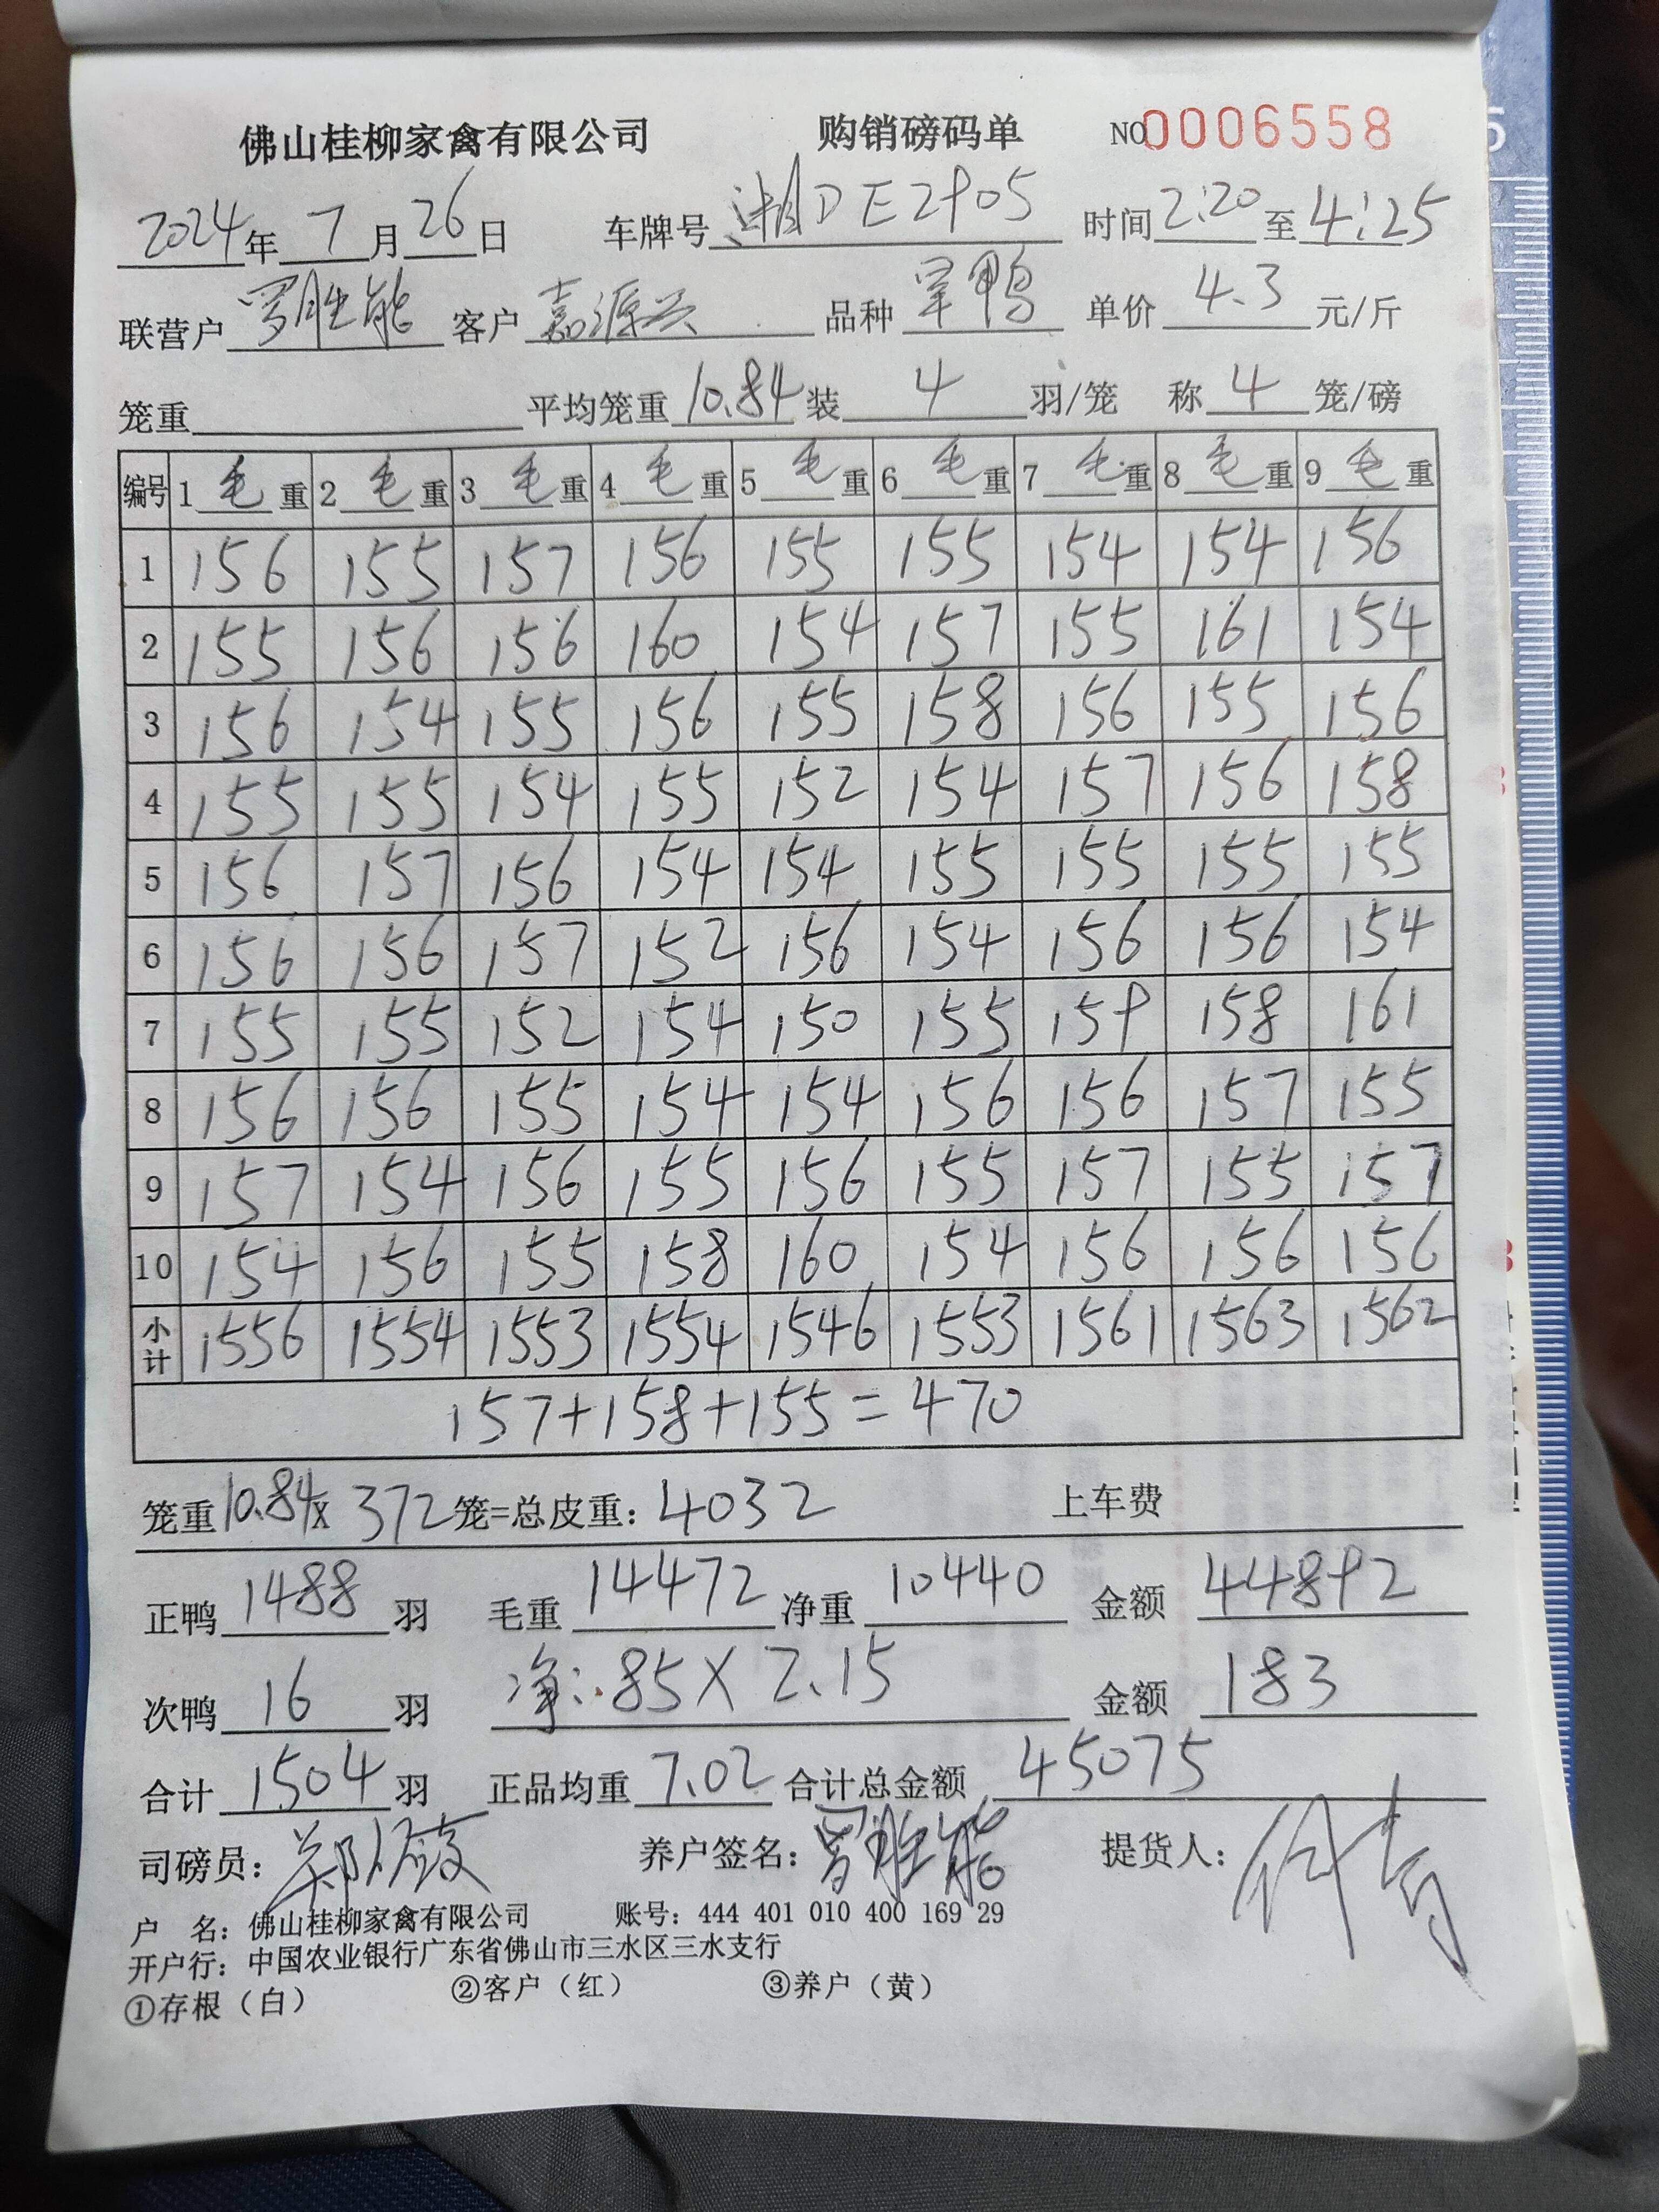 佛山桂柳家禽有限公司 购销磅码单 NO 0006558
2024年 7月 26日 车牌号 湘DE2905 时间 2:20 至 4:25
联营户 罗胜能 客户 嘉源兴 品种 鸭 单价 4.3 元/斤
笼重 平均笼重 10.84 装 4 羽/笼 称 4 笼/磅
编号 1 毛重 2 毛重 3 毛重 4 毛重 5 毛重 6 毛重 7 毛重 8 毛重 9 毛重
1 156 155 157 156 155 155 154 154 156
2 155 156 156 160 154 157 155 161 154
3 156 154 155 156 155 158 156 155 156
4 155 155 154 155 152 154 157 156 158
5 156 157 156 154 154 155 155 155 155
6 156 156 157 152 156 154 156 156 154
7 155 155 152 154 150 155 159 158 161
8 156 156 155 154 154 156 156 157 155
9 157 154 156 155 156 155 157 155 157
10 154 156 155 158 160 154 156 156 156
小计 1556 1554 1553 1554 1546 1553 1561 1563 1562
157+158+155=470
笼重 10.84 X 372 笼=总皮重: 4032 上车费
正鸭 1488 羽 毛重 14472 净重 10440 金额 44892
次鸭 16 羽 净: 85 X 2.15 金额 183
合计 1504 羽 正品均重 7.02 合计总金额 45075
司磅员: 养户签名: 罗胜能 提货人:
户 名: 佛山桂柳家禽有限公司 账号: 444 401 010 400 169 29
开户行: 中国农业银行广东省佛山市三水区三水支行
①存根（白） ②客户（红） ③养户（黄）